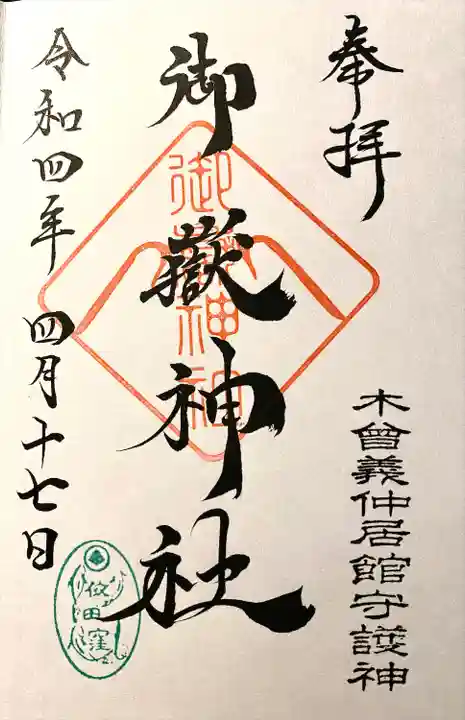 奉拝
木曾義仲居館守護神
御嶽神社
御嶽神社
令和四年 四月十七日
依田窪